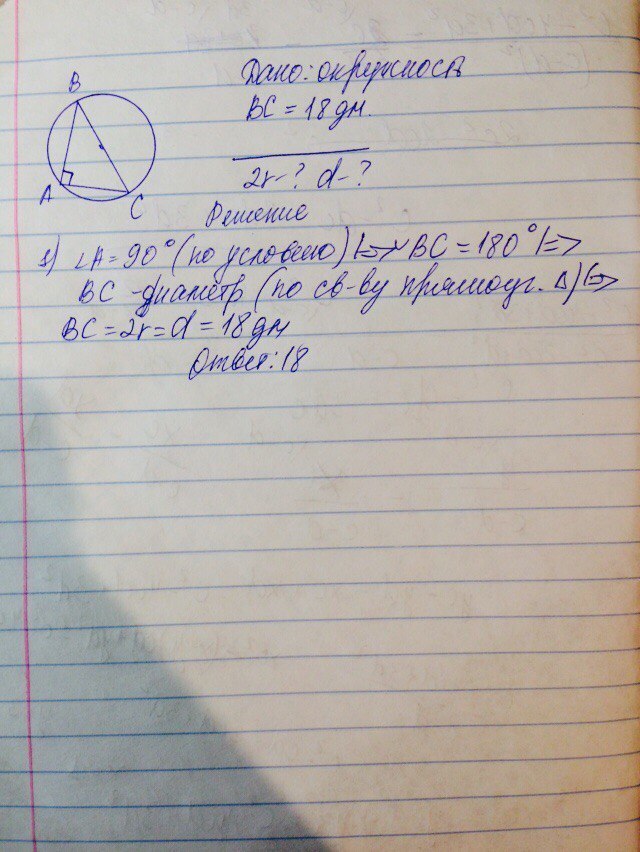 B
A
C
Дано: окружность
BC = 18 дм.
2r - ? d - ?
Решение
1) ∠A = 90° (по условию) |=> ◡BC = 180° |=>
BC - диаметр (по св-ву прямоуг. Δ) |=>
BC = 2r = d = 18 дм
Ответ: 18